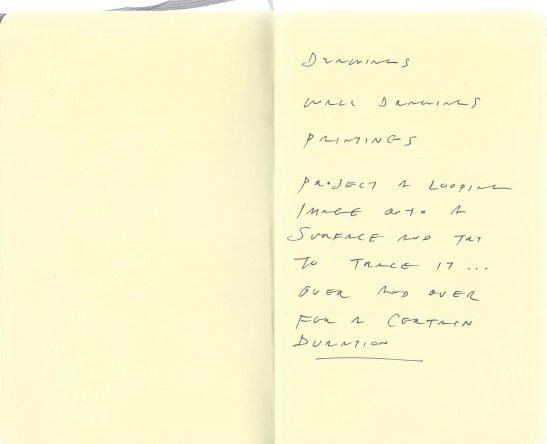 DRAWINGS
WALL DRAWINGS
PAINTINGS
PROJECT A LOOPING
IMAGE ONTO A
SURFACE AND TRY
TO TRACE IT ...
OVER AND OVER
FOR A CERTAIN
DURATION